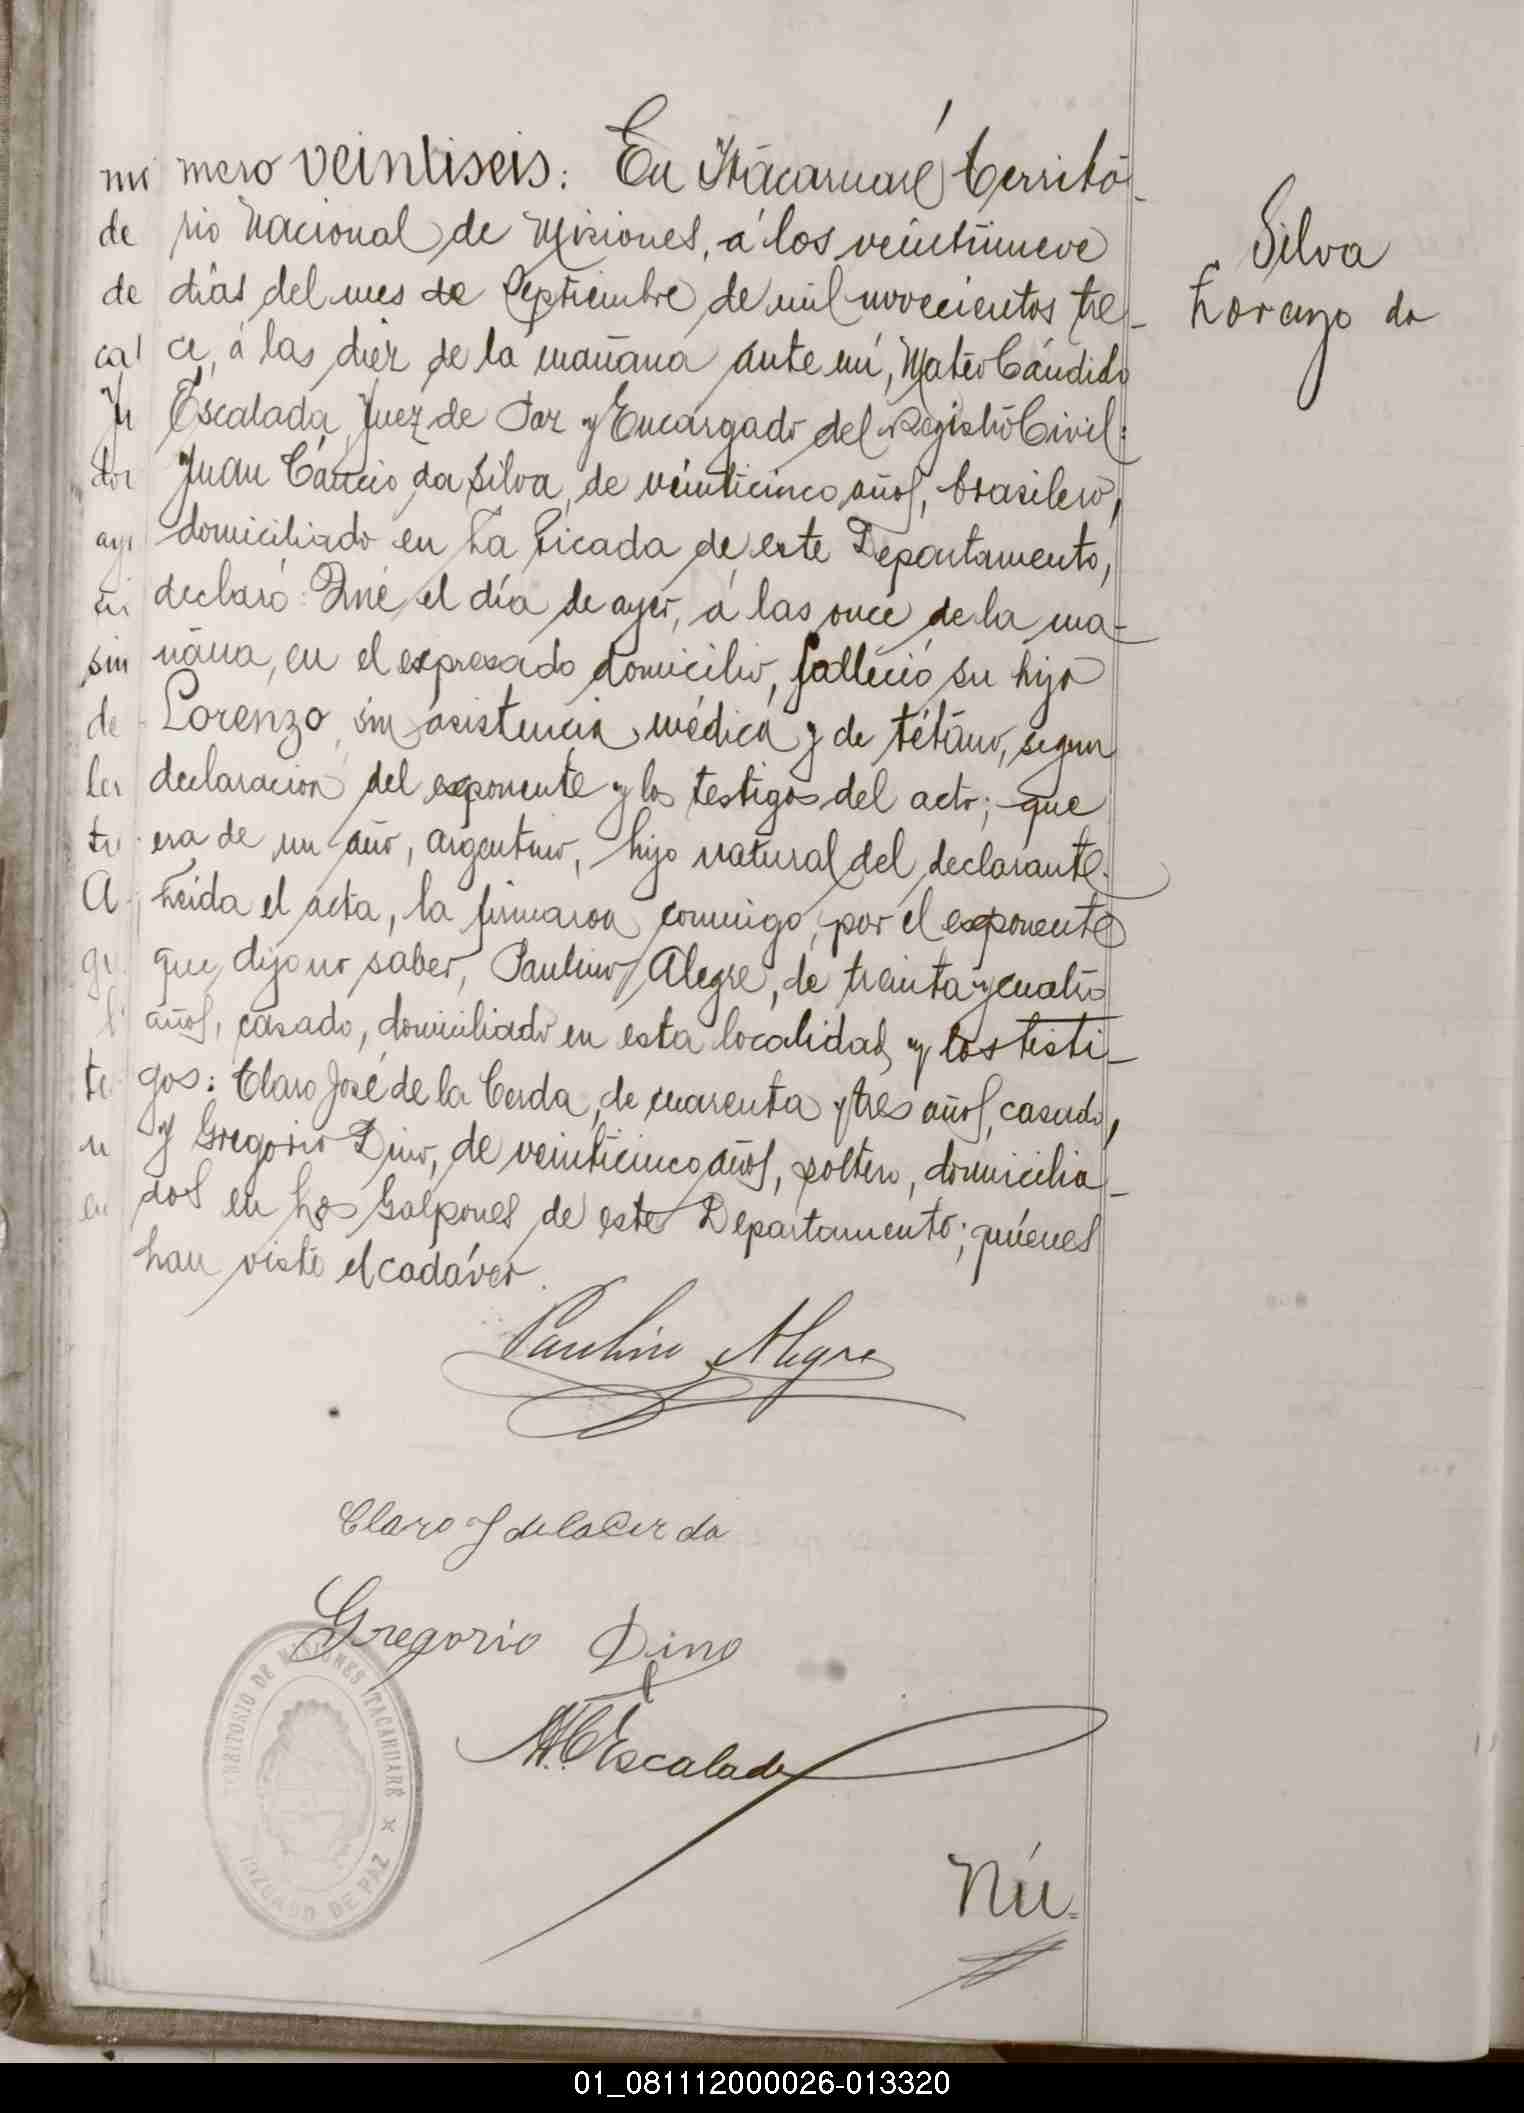 mero veintiseis: En Itacaruaré, Territo-
rio Nacional de Misiones, á los veintinueve
días del mes de Septiembre de mil novecientos tre-
ce, á las diez de la mañana ante mí, Mateo Cándido
Escalada, Juez de Paz y Encargado del Registro Civil:
Juan da Silva, de veinticinco años, brasilero,
domiciliado en La Picada de este Departamento,
declaró: Que el día de ayer, á las once de la ma-
ñana, en el expresado domicilio, falleció su hijo
Lorenzo, sin asistencia médica y de tétano, segun
declaracion del exponente y los testigos del acto; que
era de un año, argentino, hijo natural del declarante.
Leida el acta, la firmaron conmigo, por el exponente
que dijo no saber, Paulino Alegre, de treinta y cuatro
años, casado, domiciliado en esta localidad y los testi-
gos: Claro José de la Cerda, de cuarenta y tres años, casado,
y Gregorio Dino, de veinticinco años, soltero, domicilia-
dos en Los Galpones de este Departamento; quienes
han visto el cadáver.
Silva
Lorenzo da
Paulino Alegre
Claro J de la Cerda
Gregorio Dino
M. C. Escalada
TERRITORIO DE MISIONES ITACARUARÉ
JUZGADO DE PAZ
Nú=
01_081112000026-013320